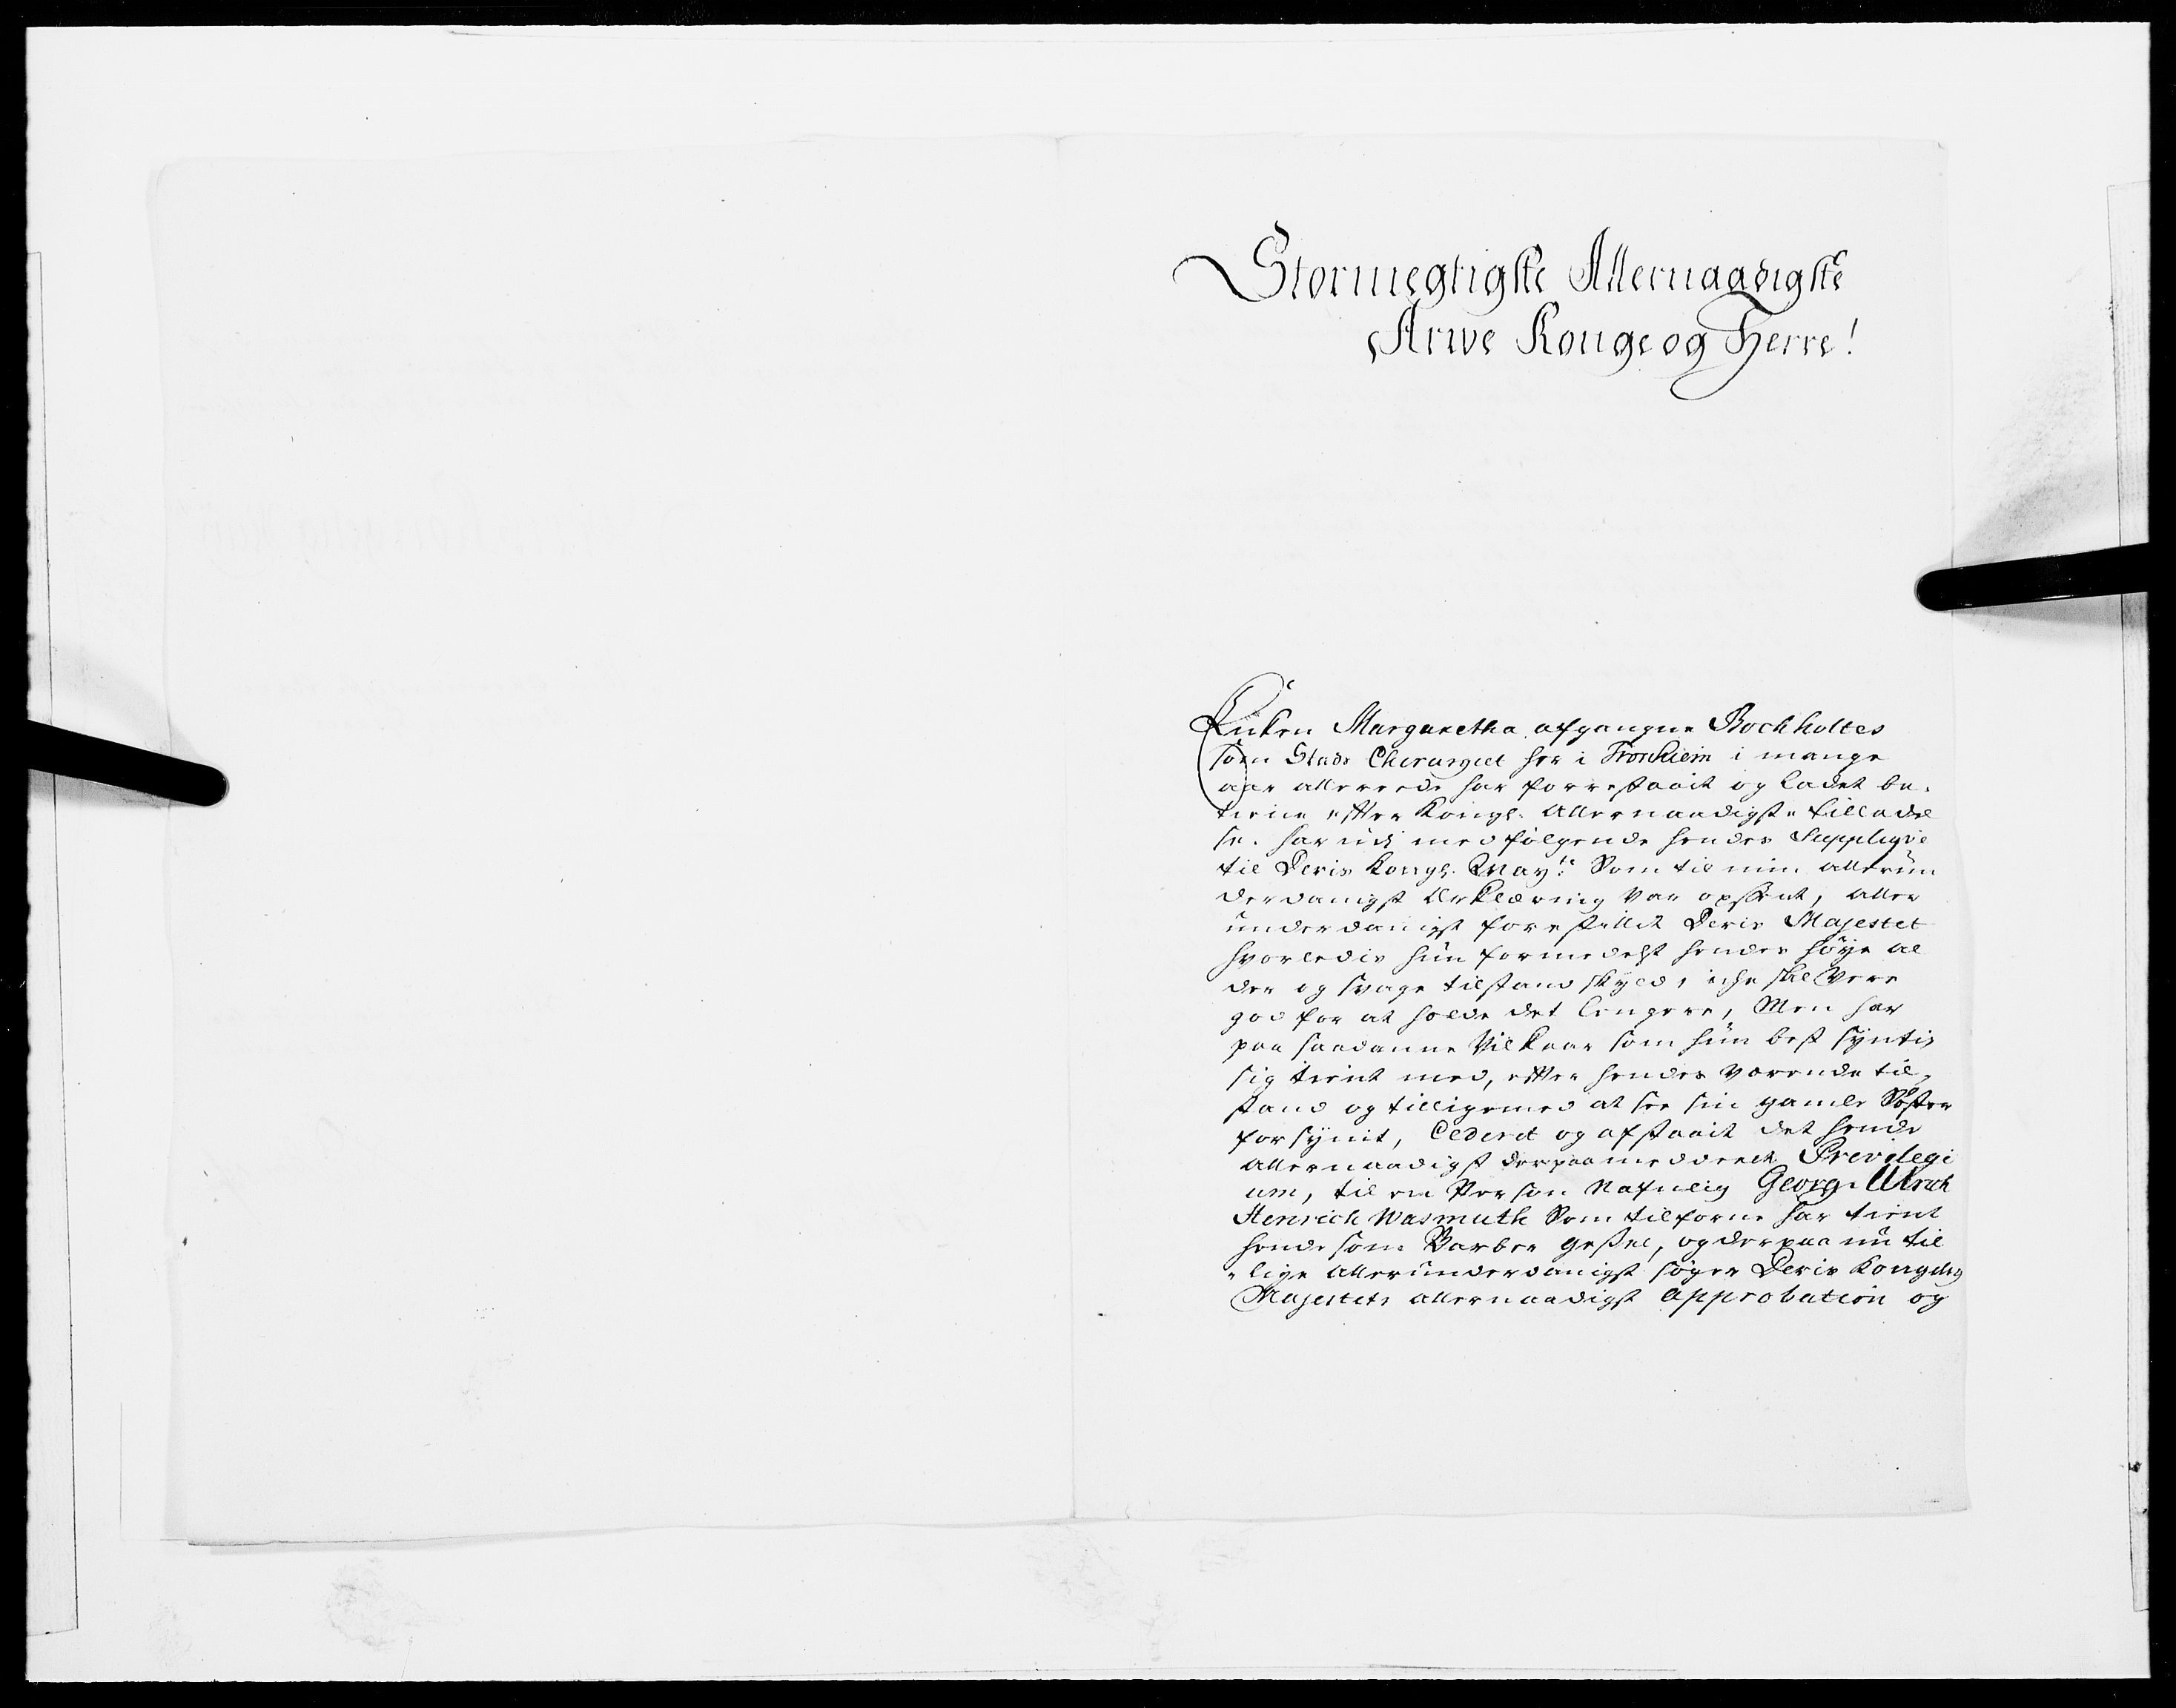 Stormegtigste Allernaadigste
Arwe Konge og Herre!
Enken Margaretha afgangne Bochholtes
som Stads Chirurgiet her i Tronhiem i mange
aar allereede har forrestaait og ladet be-
tiene efter Kongl. Allernaadigste tilladel
se. har udi medfølgende hendes Supplique
til Deris Kongl. Mayt: Som til min allerun
derdanigst Erklæring var opsent, aller
underdanigst forestillit Deris Majestet
hvorledis hun formedelst hendes høye al
der og svage tilstand skyld, iche skal vere
god for at holde det lengere, Men har
paa saadanne Vilkaar som hun best syntis
sig tient med, efter hendes værende til-
stand og tilligemed at see sin gamle Søster
forsynit, Cederet og afstaait det hende
allernaadigst derpaa meddeelt Previlegi
um, til en Person Nafnlig Georg Ulrich
Henrich Wasmuth Som tilforne har tient
hende som Barber Gesel, og derpaa nu til
lige allerunderdanigst søger Deris Konglig
Majestets allernaadigst approbation og